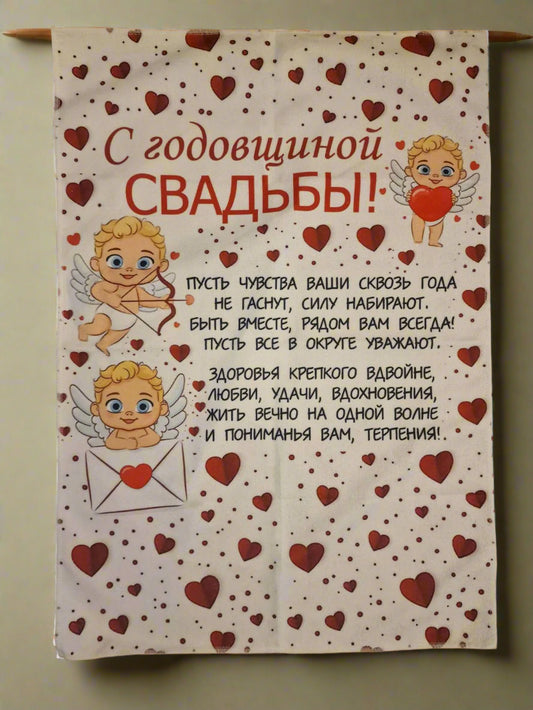 С годовщиной
СВАДЬБЫ!
ПУСТЬ ЧУВСТВА ВАШИ СКВОЗЬ ГОДА
НЕ ГАСНУТ, СИЛУ НАБИРАЮТ.
БЫТЬ ВМЕСТЕ, РЯДОМ ВАМ ВСЕГДА!
ПУСТЬ ВСЕ В ОКРУГЕ УВАЖАЮТ.
ЗДОРОВЬЯ КРЕПКОГО ВДВОЙНЕ,
ЛЮБВИ, УДАЧИ, ВДОХНОВЕНИЯ,
ЖИТЬ ВЕЧНО НА ОДНОЙ ВОЛНЕ
И ПОНИМАНЬЯ ВАМ, ТЕРПЕНИЯ!.